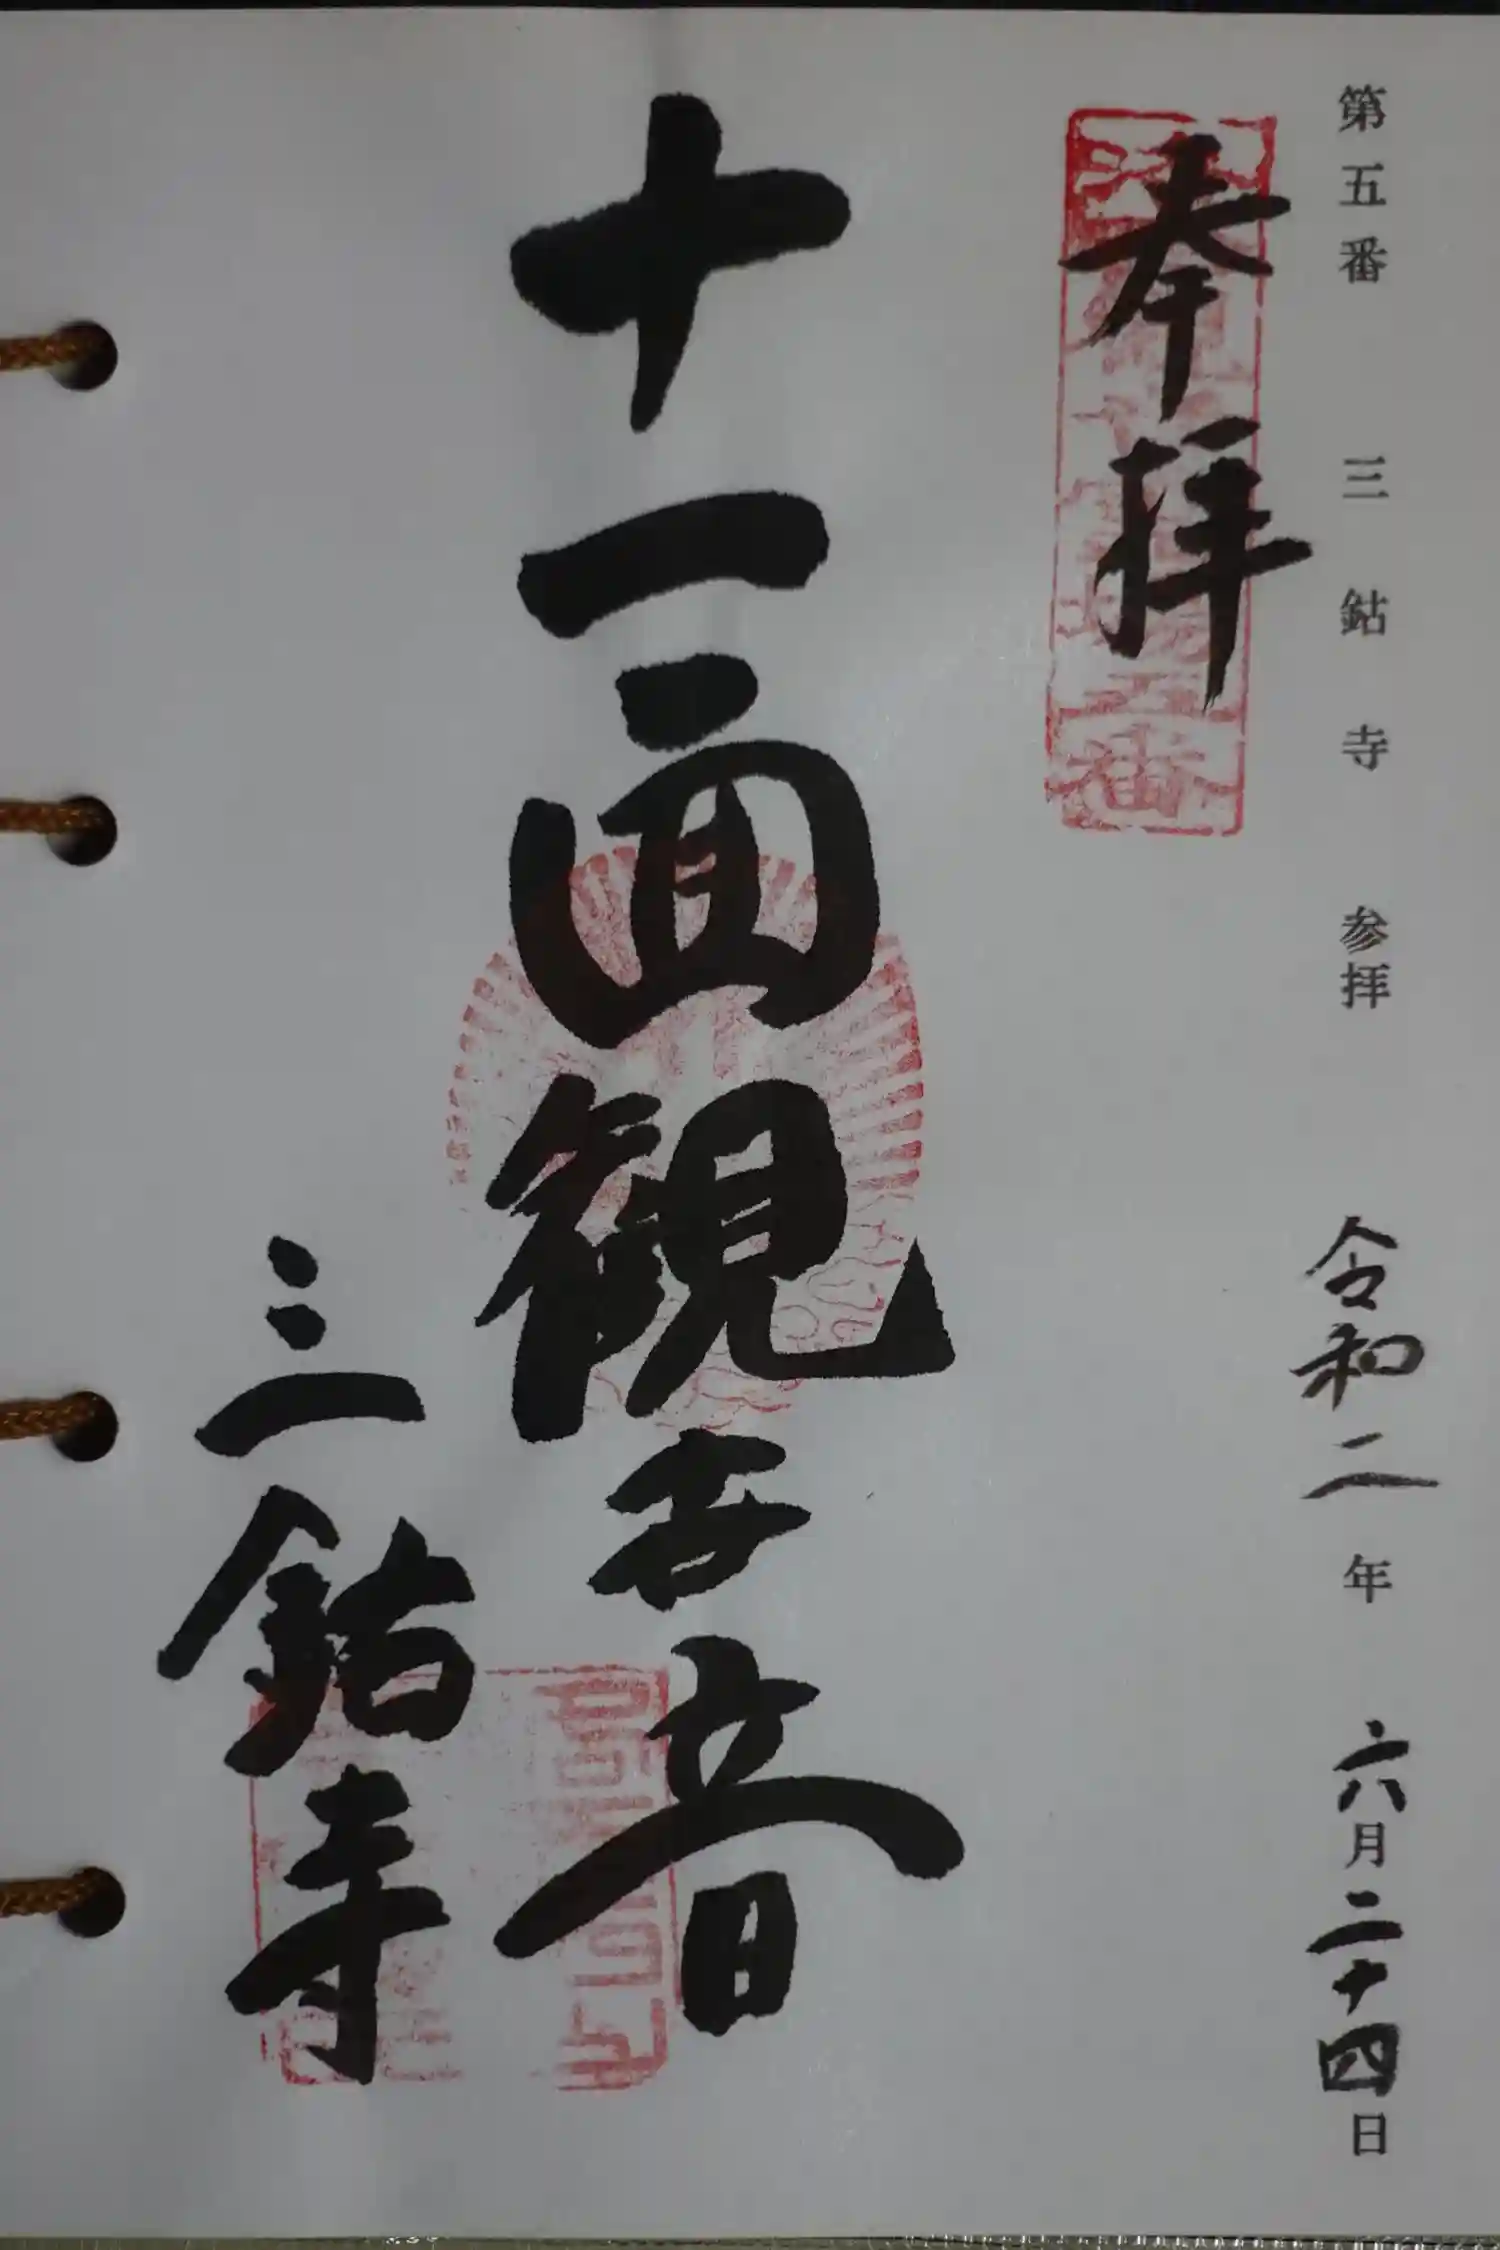 第五番 三鈷寺 参拝 令和二年 六月二十四日
奉拝
十一面観世音
三鈷寺